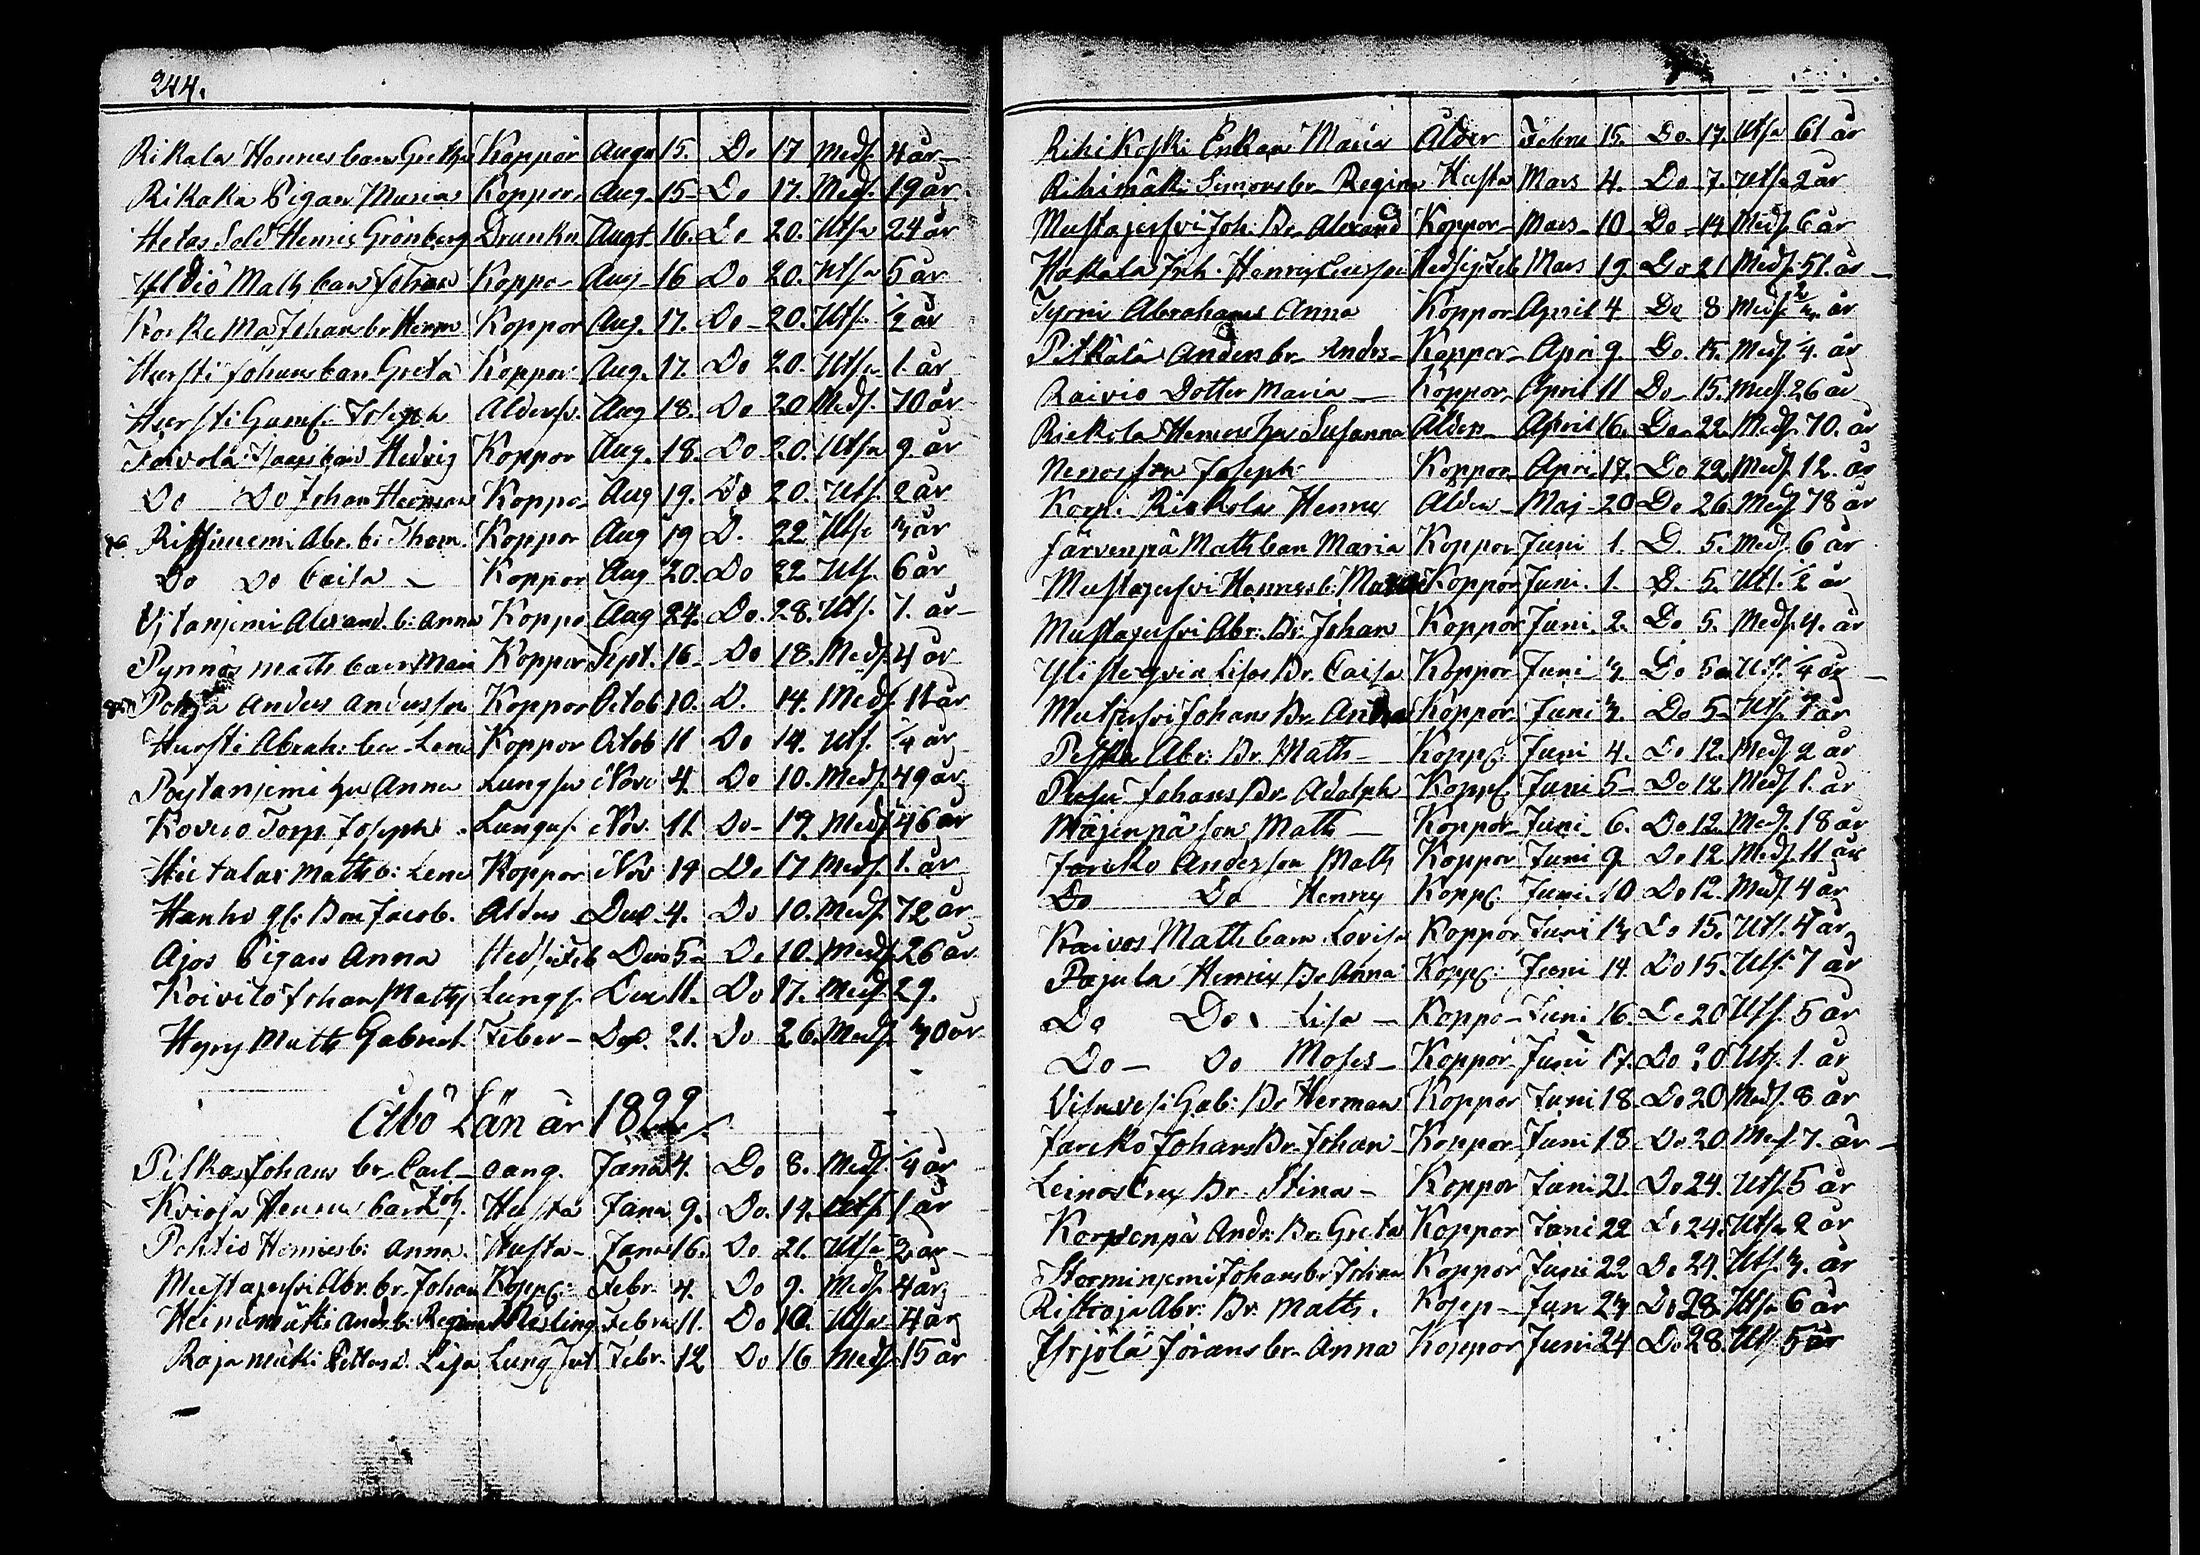 244.
Rikala Henries barn Gretha Koppor Augu 15. Do 17 Medf. 4 år
Rikala Pigan Maria Koppor Aug. 15 Do 17. Medf. 19 år
Hetas Sold Henric Grönberg Drunkn Augt 16. Do 20. Utfa 24 år
Math barn Johan Koppor Aug 16 Do 20. Utfa 5 år
Koskema Johans br Herm Koppor Aug. 17. Do 20. Utfa ½ år
Hursti Johans barn Greta Koppor Aug. 17 Do 20. Utfa 1. år
Hursti Gamf. Joseph Åldersv. Aug 18. Do 20 Medf. 70 år
Toivola barn Hedvig Koppor Aug. 18. Do 20. Utfa 9. år
Do Do Johan Herman Koppo Aug 19. Do 20. Utf. 2 år
Abr. b: Thom Koppor Aug 19 D. 22 Utfa 3 år
Do Do Caisa Koppor Aug 20. Do 22 Utf. 6 år
Alexand. b: Anna Koppo Aug 24. Do. 28. Utf. 1. år
Pynnös Math barn Maria Koppor Sept. 16 Do 18. Medf. 4 år
Pohja Anders Andersson Koppor Octob 10. D. 14. Medf. 11 år
Hursti Abrah. bar Lena Koppor Octob 11 Do 14. Utf. ¼ år
hu Anna Lungso Nov 4. Do 10. Medf. 49 år
Torp. Joseph Lungs. Nov. 11. Do 19. Medf. 46 år
Hietalas Math b: Lena Koppor Nov 14 Do 17 Medf. 1. år
Hanho gl: Bon Jacob. Ålder Dec 4. Do 10. Medf. 72 år
Ajos Pigan Anna Hedsifeb Dec 5 Do 10. Medf. 26 år
Koivisto Johan Maths Lungs. Dec 11. Do 17. Medf. 29.
Hyry Math Gabriel Feber Dec. 21. Do 26. Medf. 30 år
Åbo Län år 1822
Piska Johans br Carl oang. Janu 4. Do 8. Medf. ¼ år
Henrics barn Joh. Husta Janu 9. Do. 14. Utf. 1 år
Pohtio Henrics b: Anna. Husta Janu 16. Do 21. Utfa 2 år
Mustajerfvi Abr. br. Johan Kopp: Febr. 4. Do 9. Medf. 4 år
Heinimäki Ands b: Regina Mesling Febru 11. Do 16. Utfa 4 år
Rajamäki Petters d. Lisa Lung Febr. 12 Do 16 Medf. 15 år
Rihikoski Enkan Maria Ålder Febru 15. Do. 17. Utfa 61 år
Rihimäki Simons br Regina Husta Mars 4. Do 7. Utfa 2 år
Mustajerfvi Joh. Br Alexand Koppor Mars 10 Do 14 Medf. 6 år
Hakala Inh. Henric Hedsigfeb Mars 19 Do 21 Medf. 51. år
Tyoni Abrahams Anna Koppor April 4 Do 8 Medf. år
Pitkälä Anders br Andrs Koppor Apri 9 Do 15. Medf. ¼. år
Raivio Dotter Maria Koppor April 11 Do 15. Medf. 26 år
Riekola Henrics hu Susanna Ålder April 16. Do 22 Medf. 70. år
son Joseph Koppor Apri 17. Do 22 Medf. 12. år
Korpi Riekolas Henric Ålder Maj 20 Do 26. Medf. 78 år
Järvenpä Maths barn Maria Koppor Juni 1. D. 5. Medf. 6 år
Mustajerfvi Henrics b: Koppor Juni. 1. D. 5. Utf. ½ år
Mustajerfvi Abr: Br: Johan Koppor Juni. 2. Do 5. Medf. 4. år
Lisas Br. Caisa Koppor Juni 3 Do 5 Utf. ¼ år
Johans Br. Koppor Juni 3. Do 5 Utf. 7 år
Abr: Br Math Kopp: Juni 4. Do 12. Medf. 2 år
Johans Br. Adolph Kopp: Juni 5 Do 12. Medf. 1. år
Mäjenpä son Math Koppor Juni 6. Do 12. Medf. 18 år
Jareko Anders son Math Koppor Juni 9 Do 12 Medf. 11 år
Do Do Henric Kopp: Juni. 10 Do 12. Medf. 4 år
Kaivos Maths barn Lovisa Koppor Juni 13 Do 15. Utf. 4 år
Pajula Henrics Br Anna Kopp: Juni 14. Do 15. Utf. 7 år
Do Do Lisa Koppo Juni 16. Do 20 Utf. 5 år
Do Do Moses Koppor Juni 17. Do 20 Utf. 1. år
Visuvesi Gab: Br Herman Koppor Juni 18 Do 20 Medf. 8 år
Jareko Johans Br. Johan Koppor Juni 18. Do 20 Medf 7. år
Leinos Eric Br. Stina Koppor Juni 21. Do 24. Utf. 5 år
Korpenpä Andr: Br. Greta Koppor Juni 22 Do 24. Utfa 2 år
Storminjemi Johans br Johan Koppor Juni 22 Do 24. Utf. 3. år
Ristioja Abr: Br. Math. Kopp Jun 23 Do 28. Utfa 6 år
Yrjölä Jörans br. Anna Koppor Juni 24 Do 28. Utf. 5 år